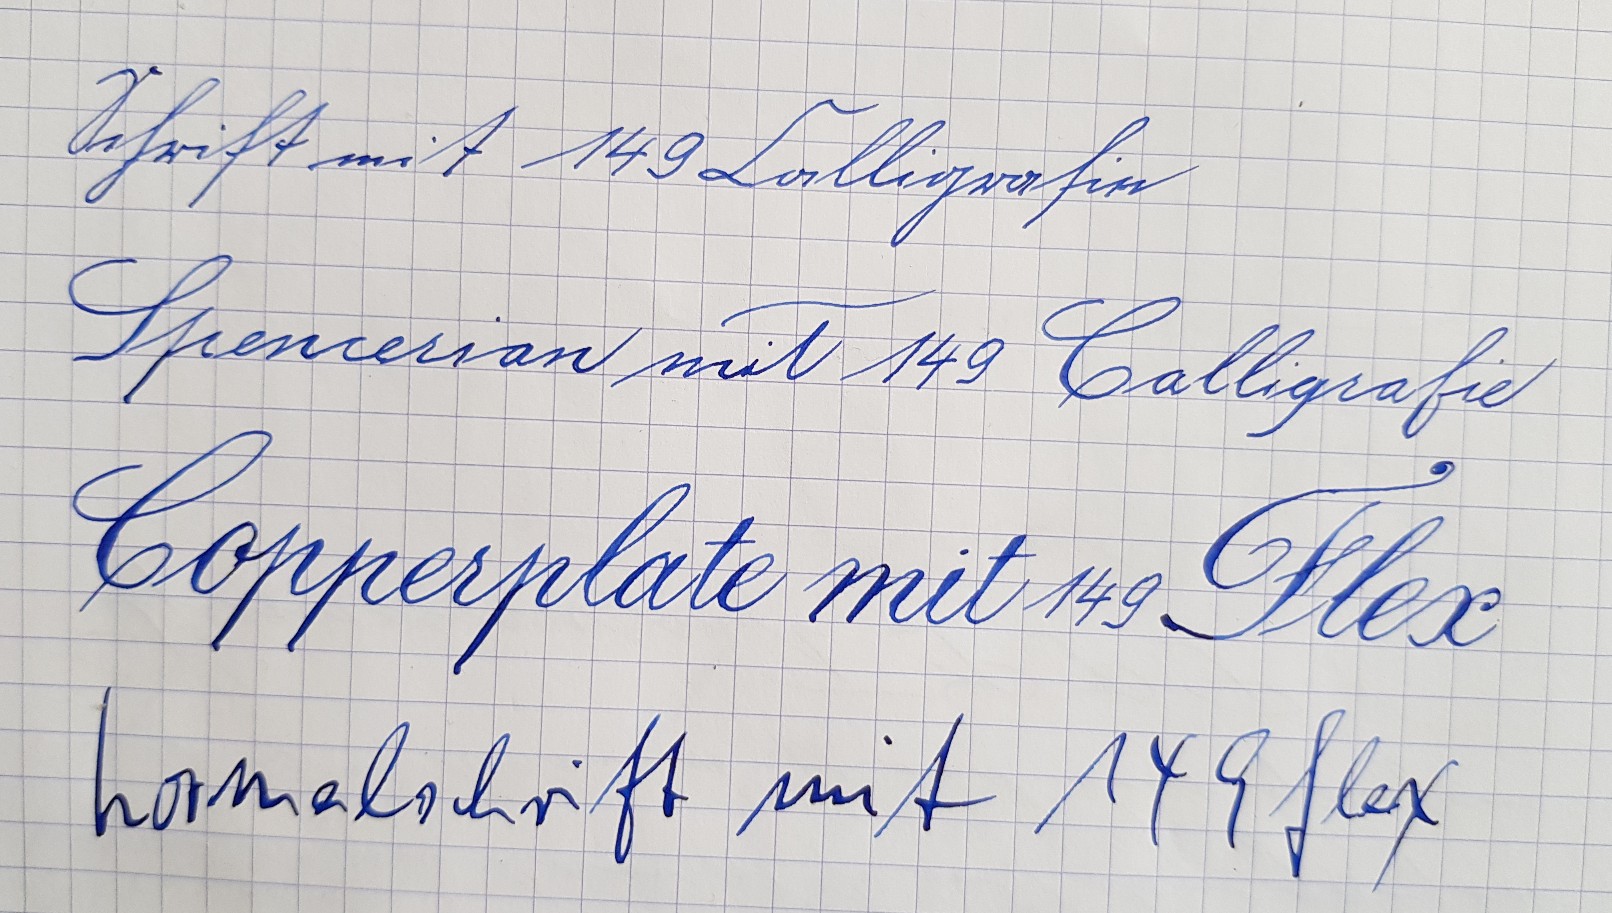 Schrift mit 149 Calligrafie
Spencerian mit 149 Calligrafie
Copperplate mit 149 Flex
Normalschrift mit 149 flex